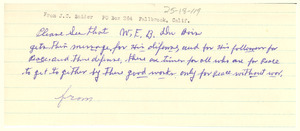 25-13-119
From J.E. Baldor PO Box 264 Fallbrook, Calif.
Please See that W. E. B. Du Bois
gets this message, for his defense, and for his followers for
Peace and there defense, there are times for all who are for Peace
to get to gether by there good works only for Peace without war.
from